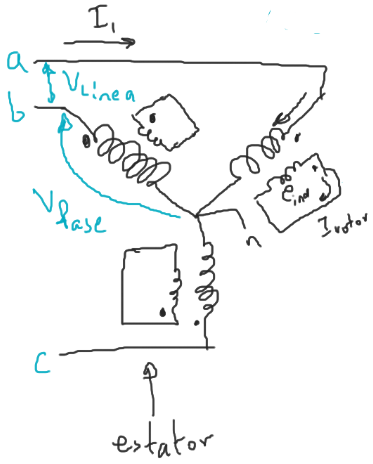 I₁
a
VLinea
b
Vfase
eind
Irotor
n
c
estator